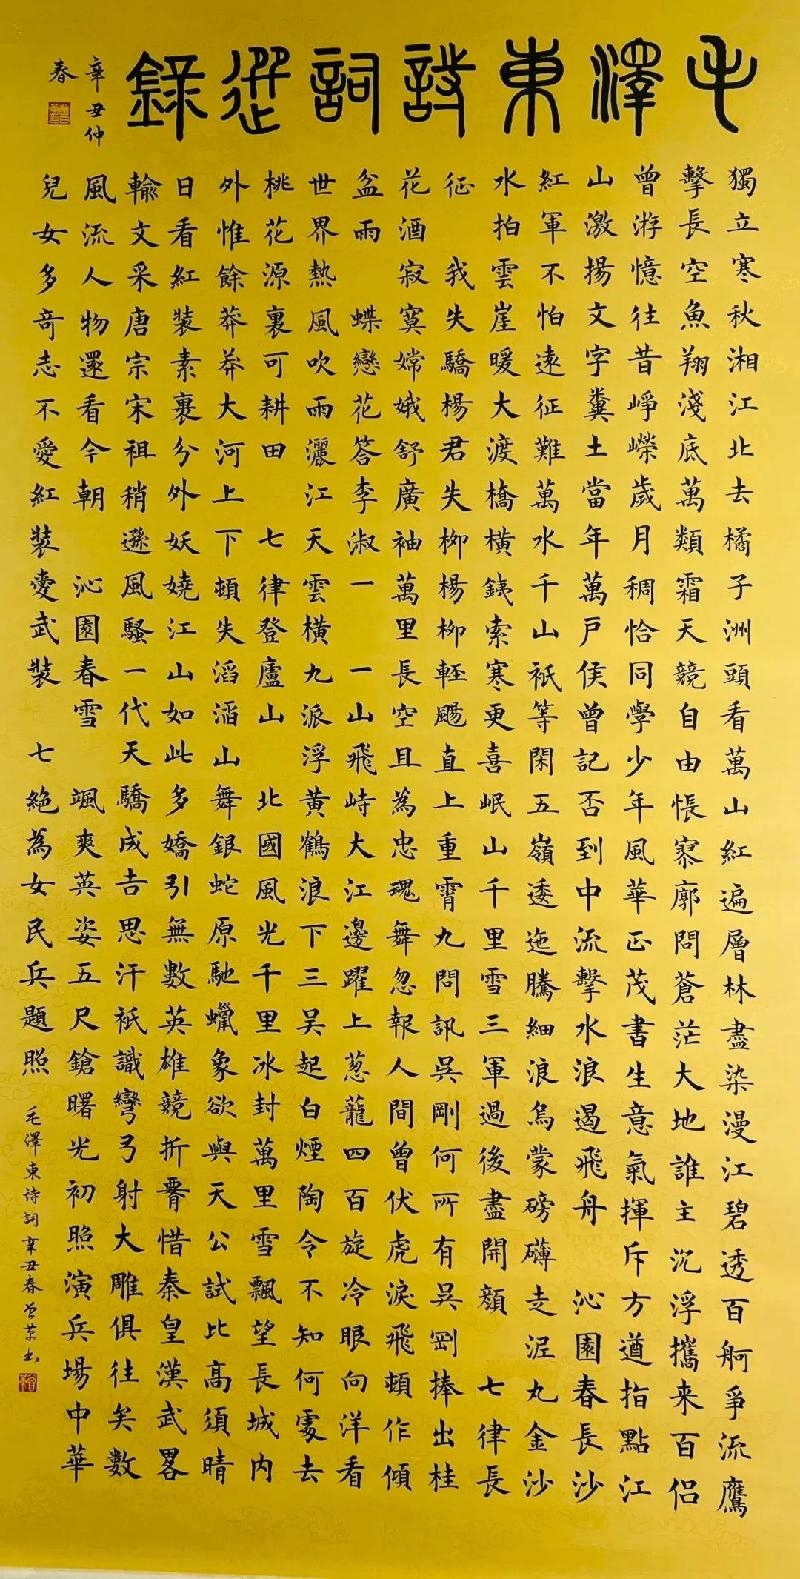 毛澤東詩詞選錄
辛丑仲
春
獨立寒秋湘江北去橘子洲頭看萬山紅遍層林盡染漫江碧透百舸爭流鷹
擊長空魚翔淺底萬類霜天競自由悵寥廓問蒼茫大地誰主沉浮攜來百侣
曾游憶往昔崢嶸歲月稠恰同學少年風華正茂書生意氣揮斥方遒指點江
山激揚文字糞土當年萬戶侯曾記否到中流擊水浪遏飛舟 沁園春長沙
紅軍不怕遠征難萬水千山祇等閑五嶺逶迤騰細浪烏蒙磅礴走泥丸金沙
水拍雲崖暖大渡橋橫鐵索寒更喜岷山千里雪三軍過後盡開顏 七律長
征 我失驕楊君失柳楊柳輕颺直上重霄九問訊吳剛何所有吳剛捧出桂
花酒寂寞嫦娥舒廣袖萬里長空且為忠魂舞忽報人間曾伏虎淚飛頓作傾
盆雨 蝶戀花答李淑一 一山飛峙大江邊躍上蔥蘢四百旋冷眼向洋看
世界熱風吹雨灑江天雲橫九派浮黃鶴浪下三吳起白煙陶令不知何處去
桃花源裏可耕田 七律登廬山 北國風光千里冰封萬里雪飄望長城內
外惟餘莽莽大河上下頓失滔滔山舞銀蛇原馳蠟象欲與天公試比高須晴
日看紅裝素裹分外妖嬈江山如此多嬌引無數英雄競折腰惜秦皇漢武畧
輸文采唐宗宋祖稍遜風騷一代天驕成吉思汗祇識彎弓射大雕俱往矣數
風流人物還看今朝 沁園春雪 颯爽英姿五尺鎗曙光初照演兵場中華
兒女多奇志不愛紅裝愛武裝 七絕為女民兵題照
毛澤東詩詞辛丑春